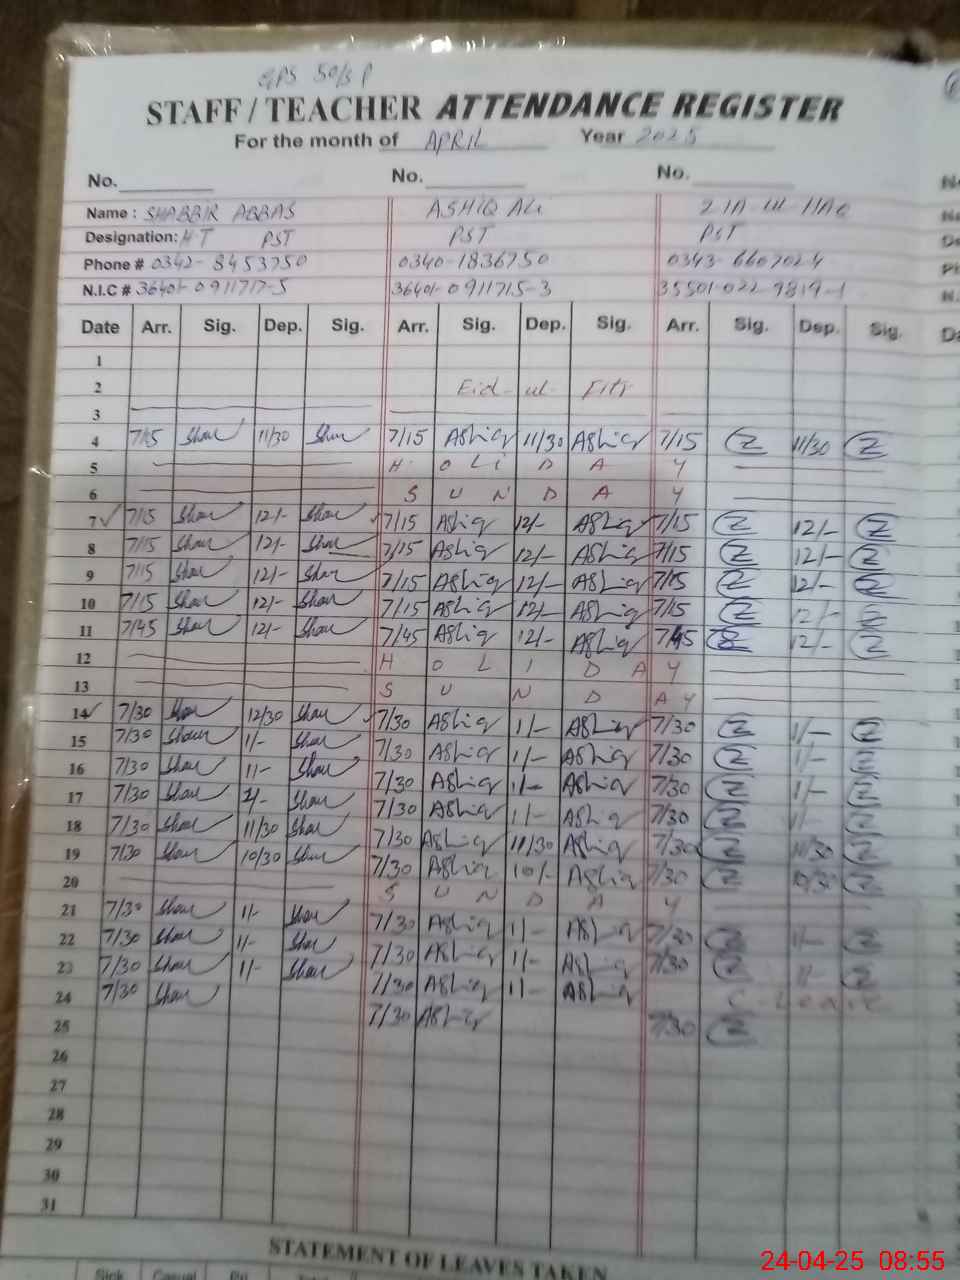 GPS 50/5 P
STAFF / TEACHER ATTENDANCE REGISTER
For the month of APRIL Year 2025
No. No. No.
Name : SHABBIR ABBAS ASHIQ ALi ZIA-ul-HAQ
Designation: HT PST PST PST
Phone # 0342-8453750 0340-1836750 0343-6607024
N.I.C # 36401-0911717-5 36401-0911715-3 35501-022-9819-1
Date Arr. Sig. Dep. Sig. Arr. Sig. Dep. Sig. Arr. Sig. Dep. Sig.
1
2 Eid-ul-Fitr
3
4 7/15 Shau 11/30 Shau 7/15 AShiq 11/30 AShiq 7/15 Z 11/30 Z
5 H O L i D A Y
6 S U N D A Y
7 7/15 Shau 12/- Shau 7/15 AShiq 12/- AShiq 7/15 Z 12/- Z
8 7/15 Shau 12/- Shau 7/15 AShiq 12/- AShiq 7/15 Z 12/- Z
9 7/15 Shau 12/- Shau 7/15 AShiq 12/- AShiq 7/15 Z 12/- Z
10 7/15 Shau 12/- Shau 7/15 AShiq 12/- AShiq 7/15 Z 12/- Z
11 7/45 Shau 12/- Shau 7/45 AShiq 12/- AShiq 7/45 Z 12/- Z
12 H O L I D A Y
13 S U N D A Y
14 7/30 Shau 12/30 Shau 7/30 AShiq 1/- AShiq 7/30 Z 1/- Z
15 7/30 Shau 1/- Shau 7/30 AShiq 1/- AShiq 7/30 Z 1/- Z
16 7/30 Shau 1/- Shau 7/30 AShiq 1/- AShiq 7/30 Z 1/- Z
17 7/30 Shau 1/- Shau 7/30 AShiq 1/- AShiq 7/30 Z 1/- Z
18 7/30 Shau 11/30 Shau 7/30 AShiq 11/30 AShiq 7/30 Z 11/30 Z
19 7/30 Shau 10/30 Shau 7/30 AShiq 10/- AShiq 7/30 Z 10/30 Z
20 S U N D A Y
21 7/30 Shau 1/- Shau 7/30 AShiq 1/- AShiq 7/30 Z 1/- Z
22 7/30 Shau 1/- Shau 7/30 AShiq 1/- AShiq 7/30 Z 1/- Z
23 7/30 Shau 1/- Shau 7/30 AShiq 1/- AShiq C Leave
24 7/30 Shau 7/30 AShiq 7/30 Z
25
26
27
28
29
30
31
STATEMENT OF LEAVES TAKEN
Sick Casual
24-04-25 08:55